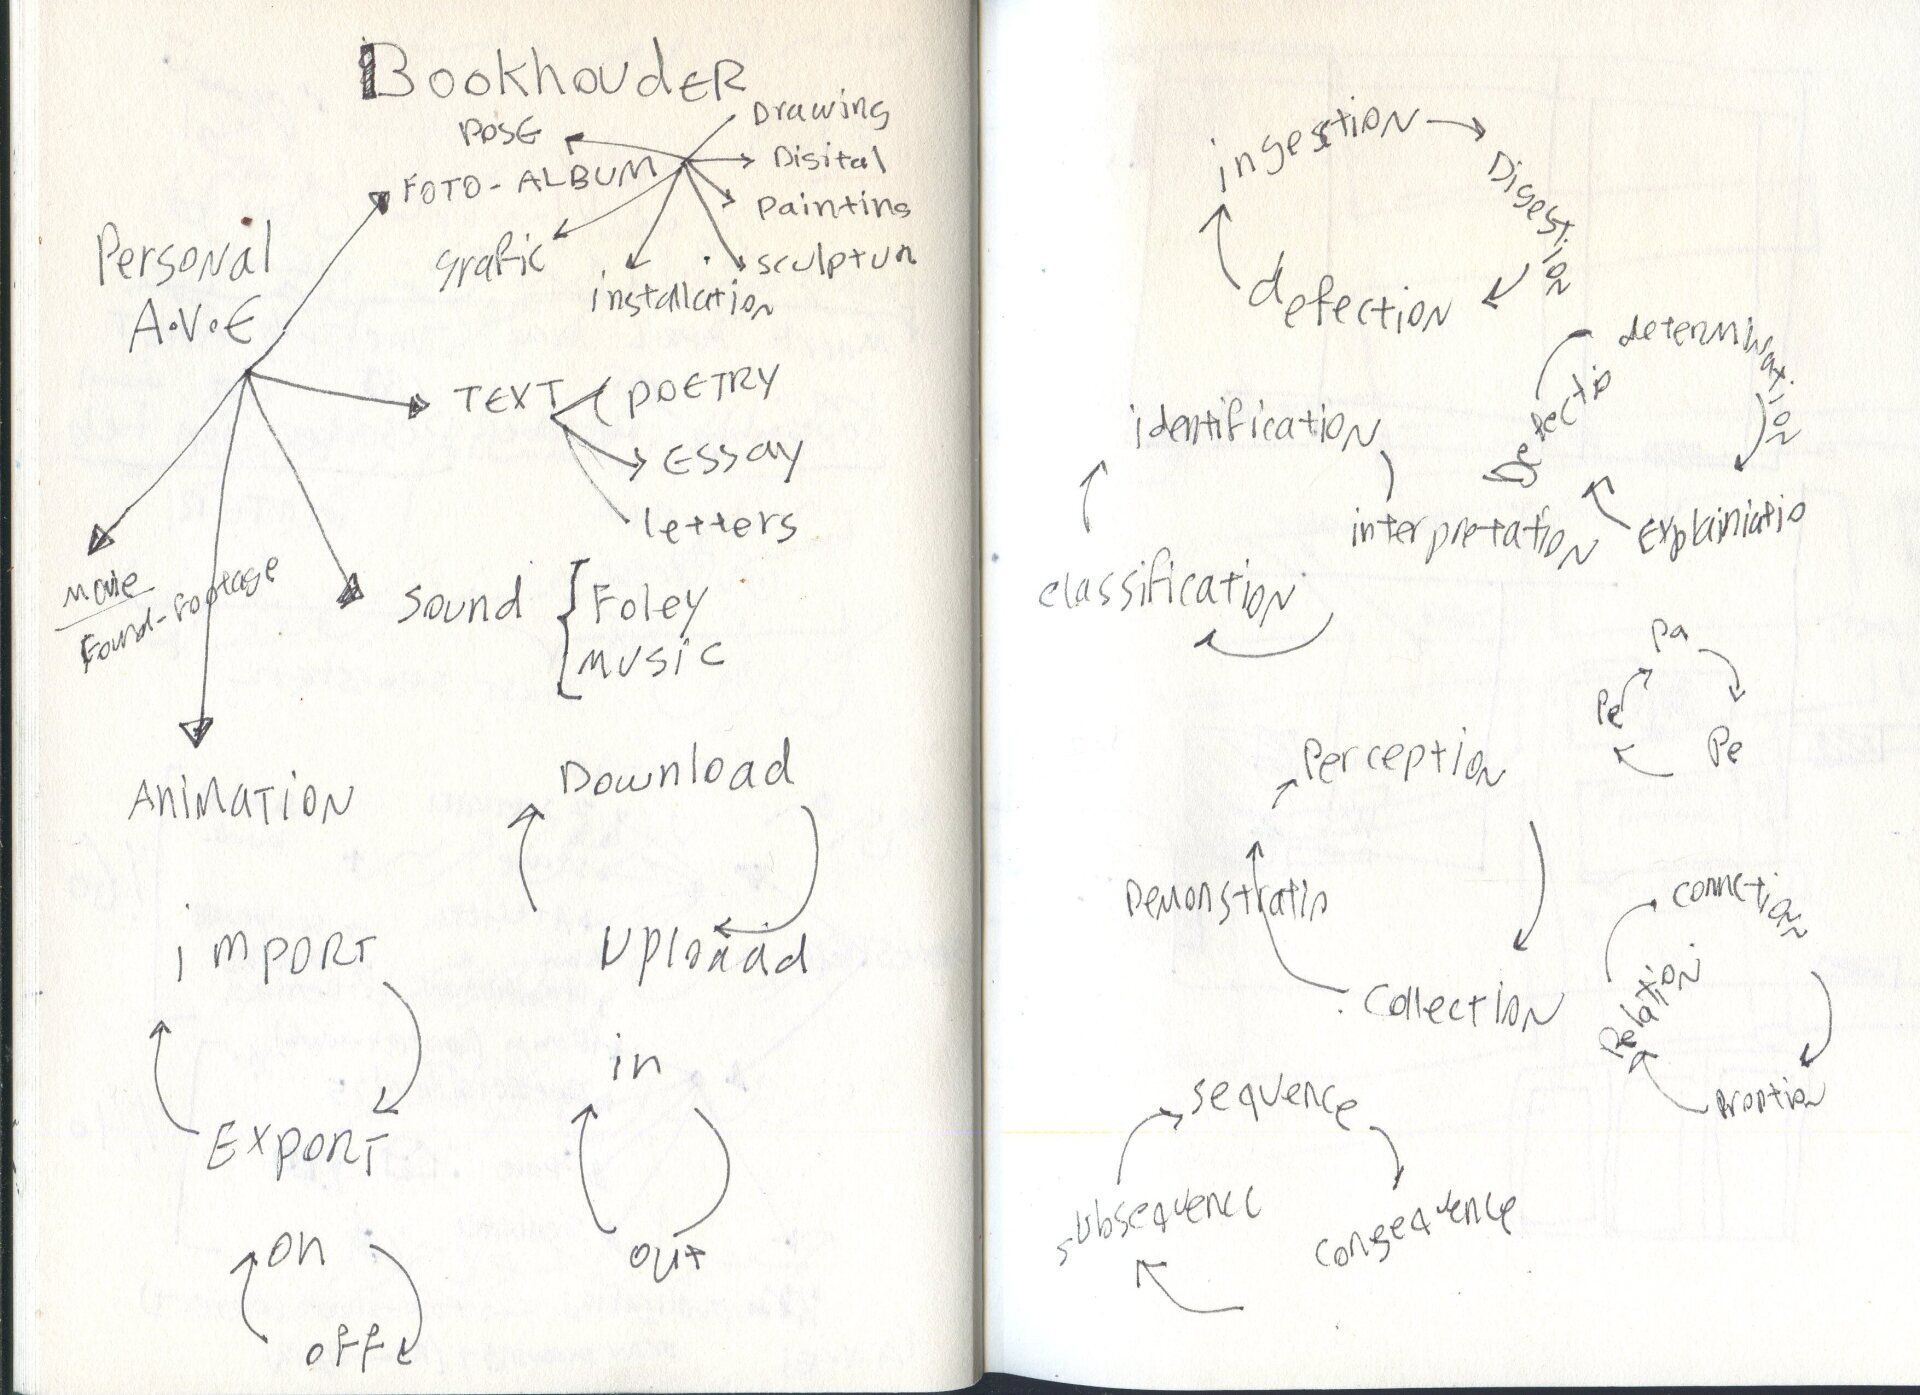 BookhoudER
POSE
Drawing
FOTO-ALBUM
Disital
Painting
grafic
sculptur
installation
Personal
A.V.E
TEXT
POETRY
ESSay
letters
movie
Found-footage
Sound
Foley
MUSIC
ANIMATION
Download
Uploaad
iMPORT
EXPORT
in
out
on
off
ingestion
Digestion
defection
determination
Detectio
Explainiatio
identification
interpretation
classification
Pa
Pe
Pe
Perception
Demonstratio
Collection
connction
Relation
sequence
consequence
subsequence